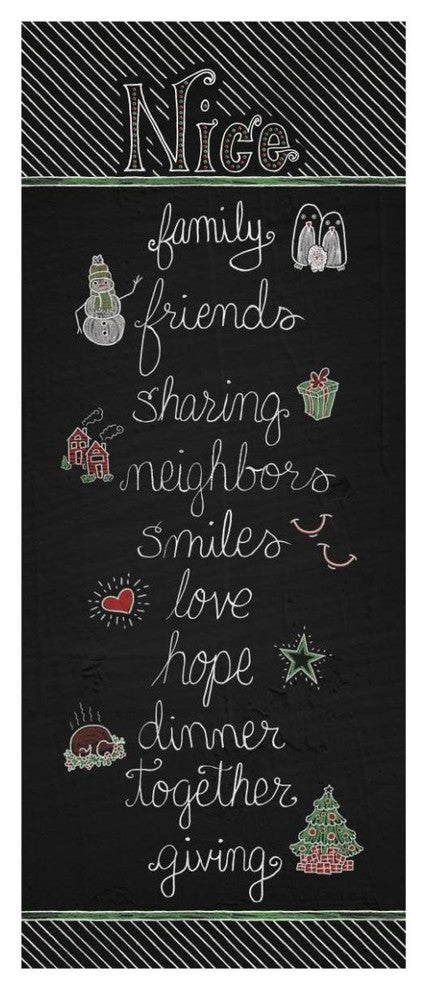 Nice
family
friends
sharing
neighbors
smiles
love
hope
dinner
together
giving